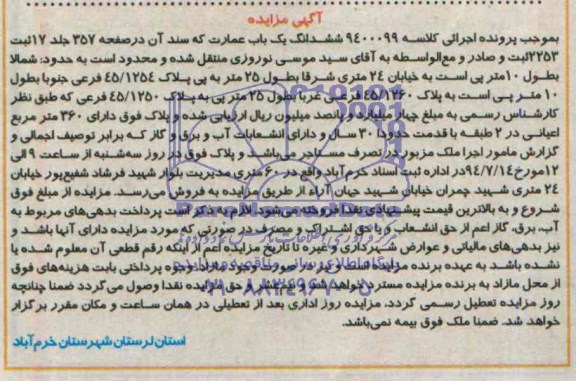 آگهی مزایده
بموجب پرونده اجرائی کلاسه ۹۴۰۰۰۹۹ ششدانگ یک باب عمارت که سند آن درصفحه ۳۵۷ جلد ۱۷ ثبت
۲۲۵۳ ثبت و صادر و مع‌الواسطه به آقای سید موسی نوروزی منتقل شده و محدود است به حدود: شمالا
بطول ۱۰متر پی است به خیابان ۲۴ متری شرقا بطول ۲۵ متر به پی پلاک ۴۵/۱۲۵۴ فرعی جنوبا بطول
۱۰ متر پی است به پلاک ۴۵/۱۲۶۰ فرعی غربا بطول ۲۵ متر پی به پلاک ۴۵/۱۲۵۰ فرعی که طبق نظر
کارشناس رسمی به مبلغ چهار میلیارد و پانصد میلیون ریال ارزیابی شده و پلاک فوق دارای ۳۶۰ متر مربع
اعیانی در ۲ طبقه با قدمت حدودا ۳۰ سال و دارای انشعابات آب و برق و گاز که برابر توصیف اجمالی و
گزارش مامور اجرا ملک مزبور در تصرف مستاجر می‌باشد و پلاک فوق در روز سه‌شنبه از ساعت ۹ الی
۱۲مورخ ۹۴/۷/۱۴ در اداره ثبت اسناد خرم‌آباد واقع در ۶۰ متری مدیریت بلوار شهید فرشاد شفیع‌پور خیابان
۲۴ متری شهید چمران خیابان شهید جهان آراء از طریق مزایده به فروش می‌رسد. مزایده از مبلغ فوق
شروع و به بالاترین قیمت پیشنهادی نقدا فروخته می‌شود. لازم به ذکر است پرداخت بدهی‌های مربوط به
آب، برق، گاز اعم از حق انشعاب و یا حق اشتراک و مصرف در صورتی که مورد مزایده دارای آنها باشد و
نیز بدهی‌های مالیاتی و عوارض شهرداری و غیره تا تاریخ مزایده اعم از اینکه رقم قطعی آن معلوم شده یا
نشده باشد به عهده برنده مزایده است و نیز در صورت وجود مازاد وجوه پرداختی بابت هزینه‌های فوق
از محل مازاد به برنده مزایده مسترد خواهد شد و نیم عشر و حق مزایده نقدا وصول می‌گردد ضمنا چنانچه
روز مزایده تعطیل رسمی گردد، مزایده روز اداری بعد از تعطیلی در همان ساعت و مکان مقرر برگزار
خواهد شد. ضمنا ملک فوق بیمه نمی‌باشد.
استان لرستان شهرستان خرم‌آباد